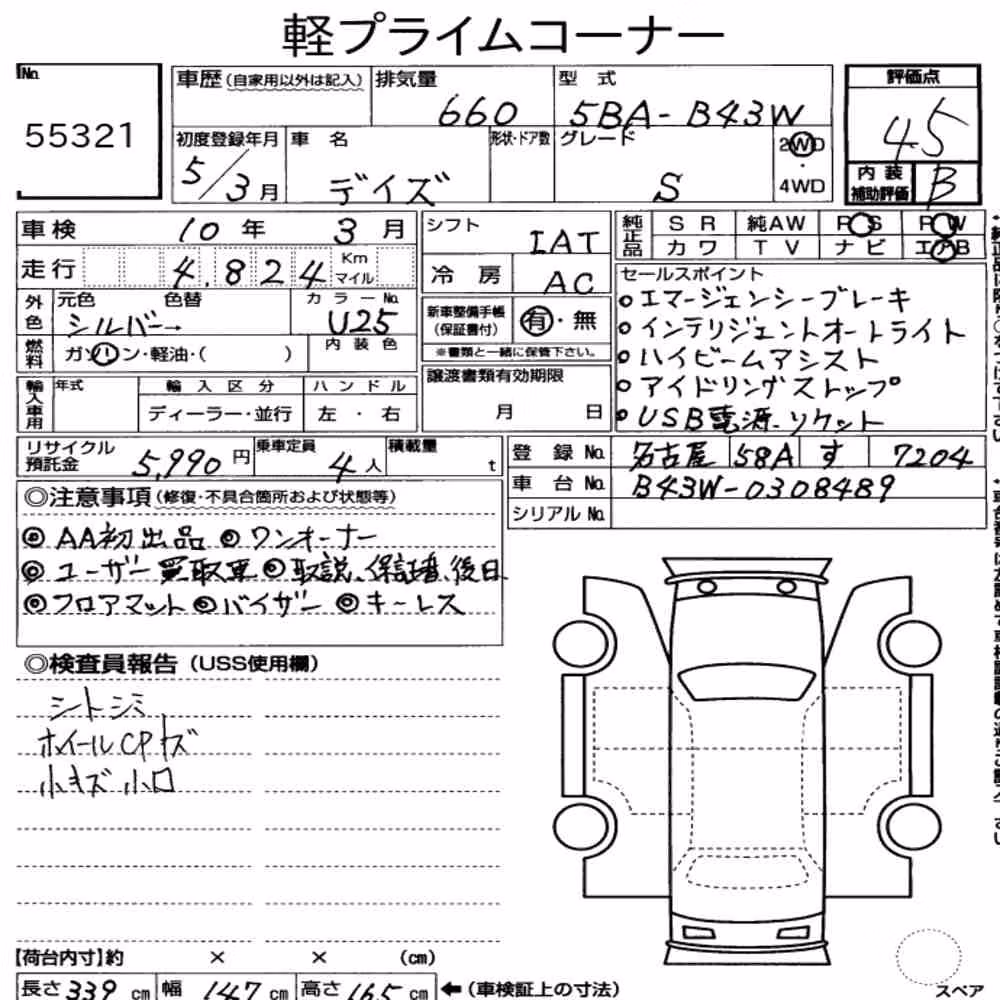 軽プライムコーナー
No.
55321
車歴(自家用以外は記入)
排気量
660
型式
5BA-B43W
評価点
45
内装補助評価
B
初度登録年月
5/3月
車名
デイズ
形状・ドア数
グレード
S
2WD
・
4WD
車検 10年 3月
走行 4,824 Km マイル
シフト
IAT
冷房
AC
純正品
SR 純AW PS PW
カワ TV ナビ エアB
外色
元色 色替
シルバー→
カラーNo.
U25
燃料
ガソリン・軽油・( )
内装色
新車整備手帳(保証書付)
有・無
※書類と一緒に保管下さい。
セールスポイント
○エマージェンシーブレーキ
○インテリジェントオートライト
○ハイビームアシスト
○アイドリングストップ
○USB電源ソケット
輸入車用
年式
輸入区分
ディーラー・並行
ハンドル
左・右
譲渡書類有効期限
月 日
リサイクル預託金
5,990円
乗車定員
4人
積載量
t
登録No. 名古屋 58A す 7204
車台No. B43W-0308489
シリアルNo.
◎注意事項(修復・不具合箇所および状態等)
◎AA初出品 ◎ワンオーナー
◎ユーザー買取車 ◎取説、保証書、後日
◎フロアマット ◎バイザー ◎キーレス
◎検査員報告(USS使用欄)
シートシミ
ホイールCPキズ
小キズ 小凹
【荷台内寸】約 × × (cm)
長さ 339 cm 幅 147 cm 高さ 165 cm ←(車検証上の寸法)
スペア